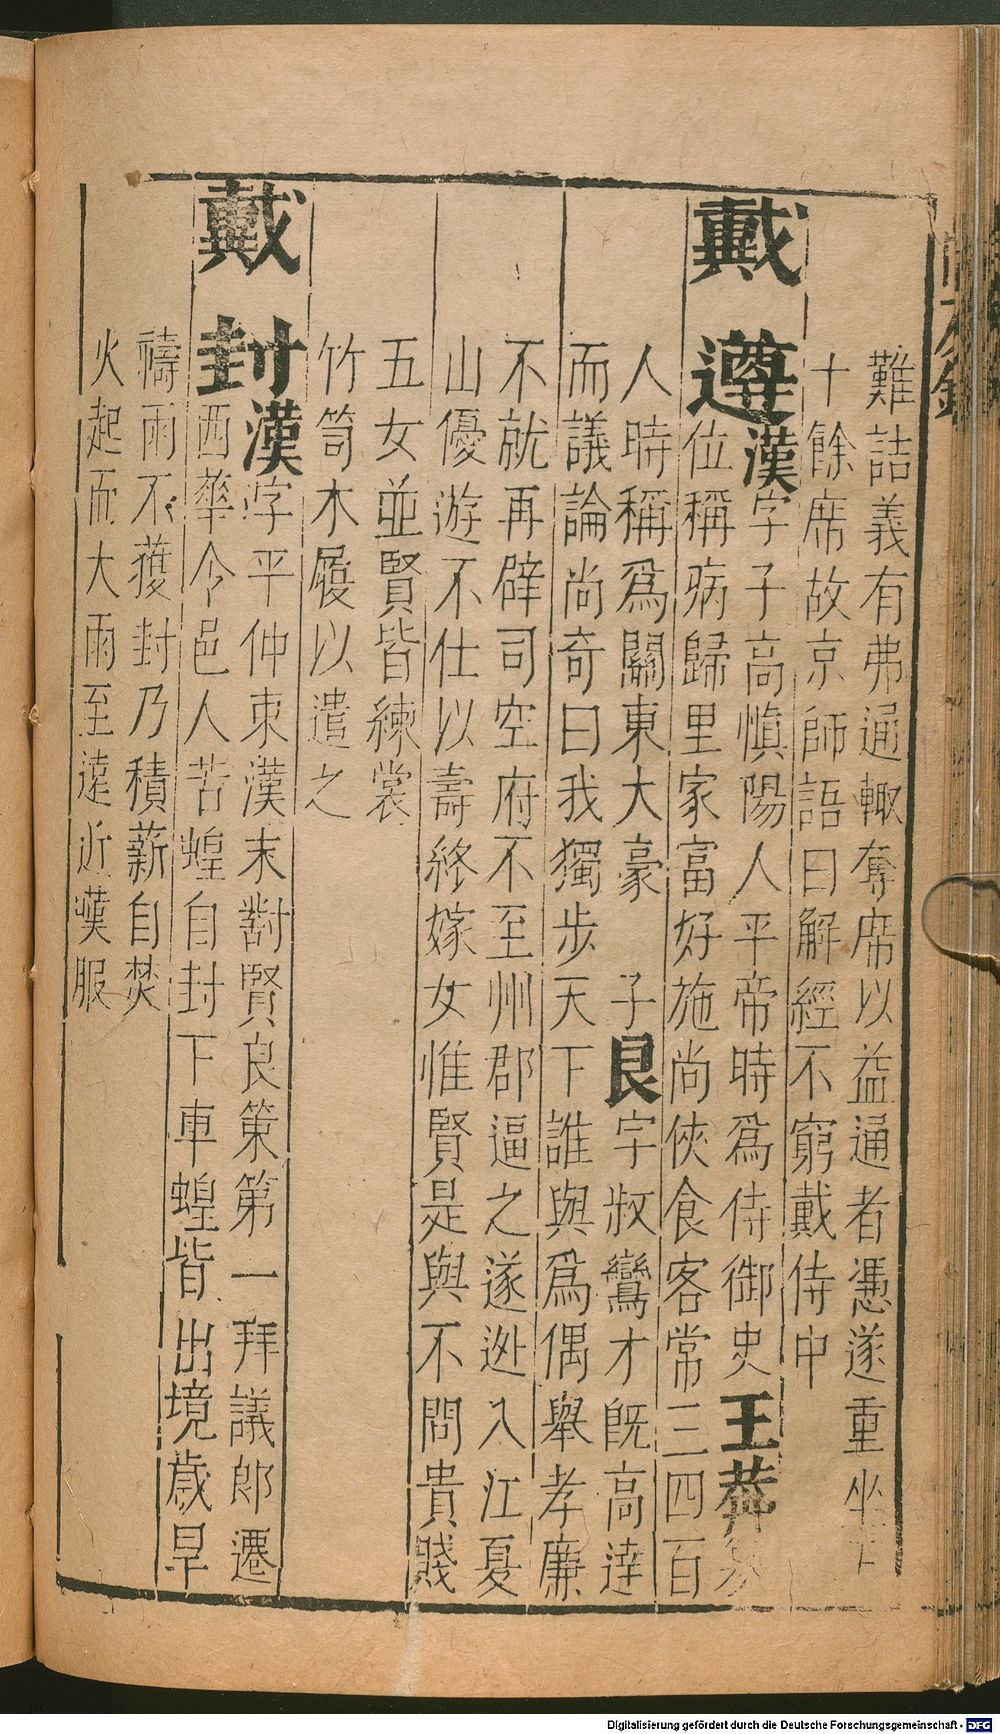 難詰義有弗通輙奪席以益通者憑遂重坐五
十餘席故京師語曰解經不窮戴侍中
戴遵漢字子高慎陽人平帝時爲侍御史王莽篡
位稱病歸里家富好施尚俠食客常三四百
人時稱爲關東大豪 子良字叔鸞才旣高達
而議論尚奇曰我獨步天下誰與爲偶舉孝廉
不就再辟司空府不至州郡逼之遂迯入江夏
山優遊不仕以壽終嫁女惟賢是與不問貴賤
五女並賢皆練裳
竹笥木屐以遣之
戴封漢字平仲東漢末對賢良策第一拜議郎遷
西華令邑人苦蝗自封下車蝗皆出境歳旱
禱雨不獲封乃積薪自焚
火起而大雨至遠近嘆服
Digitalisierung gefördert durch die Deutsche Forschungsgemeinschaft - DFG